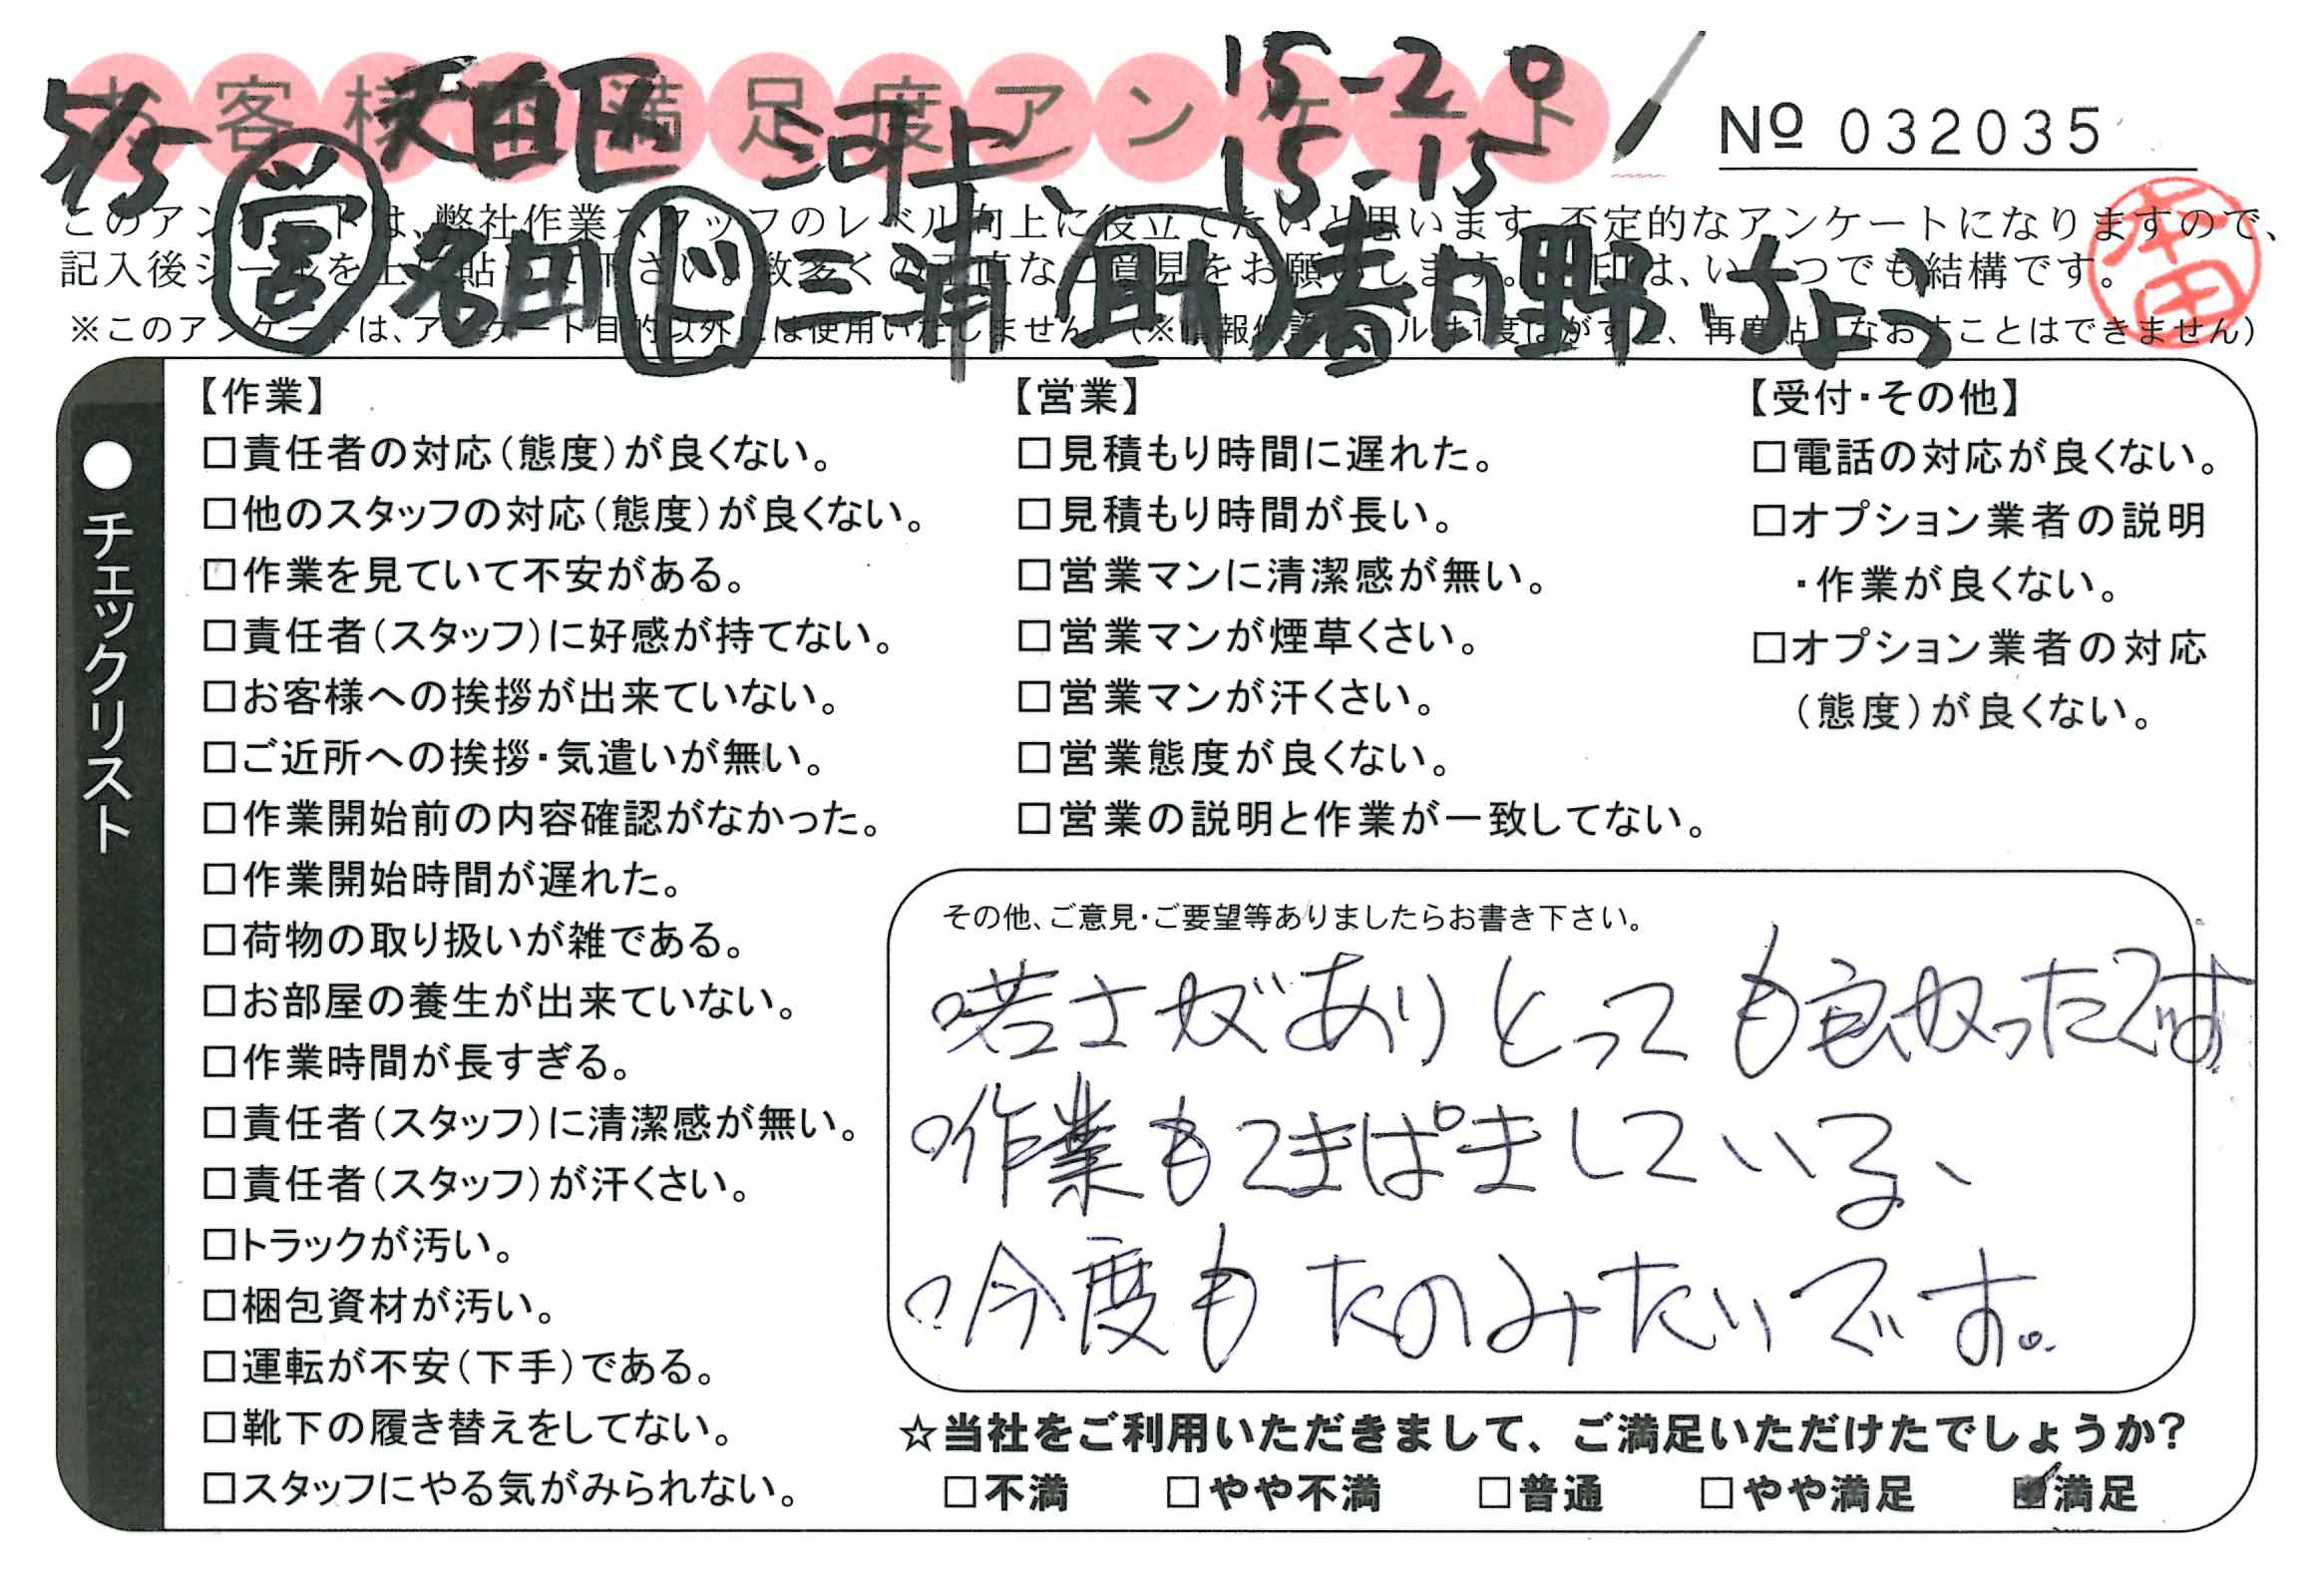 お客様 満足度アンケート
5/5 天白区 河上、 15-20
15-15
№ 032035
営 名田 ド 三浦 助 春日野 ちょう
本田
このアンケートは、弊社作業スタッフのレベル向上に役立てたいと思います。不定的なアンケートになりますので、
記入後シールを上に貼って下さい。数多くの正直なご意見をお願いします。 印は、いくつでも結構です。
※このアンケートは、アンケート目的以外には使用いたしません。(※情報保護シールは1度はがすと、再度貼りなおすことはできません)
●チェックリスト
【作業】
□責任者の対応(態度)が良くない。
□他のスタッフの対応(態度)が良くない。
□作業を見ていて不安がある。
□責任者(スタッフ)に好感が持てない。
□お客様への挨拶が出来ていない。
□ご近所への挨拶・気遣いが無い。
□作業開始前の内容確認がなかった。
□作業開始時間が遅れた。
□荷物の取り扱いが雑である。
□お部屋の養生が出来ていない。
□作業時間が長すぎる。
□責任者(スタッフ)に清潔感が無い。
□責任者(スタッフ)が汗くさい。
□トラックが汚い。
□梱包資材が汚い。
□運転が不安(下手)である。
□靴下の履き替えをしてない。
□スタッフにやる気がみられない。
【営業】
□見積もり時間に遅れた。
□見積もり時間が長い。
□営業マンに清潔感が無い。
□営業マンが煙草くさい。
□営業マンが汗くさい。
□営業態度が良くない。
□営業の説明と作業が一致してない。
【受付・その他】
□電話の対応が良くない。
□オプション業者の説明
・作業が良くない。
□オプション業者の対応
(態度)が良くない。
その他、ご意見・ご要望等ありましたらお書き下さい。
○若さがありとっても良かったです
○作業もてきぱきしている、
○今度もたのみたいです。
☆当社をご利用いただきまして、ご満足いただけたでしょうか?
□不満 □やや不満 □普通 □やや満足 ☑満足